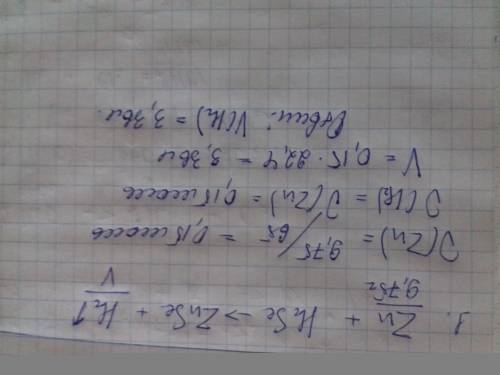 1. Zn + H₂Se → ZnSe + H₂↑
9,75г V
ν(Zn) = 9,75/65 = 0,15 моль
ν(H₂) = ν(Zn) = 0,15 моль
V = 0,15 · 22,4 = 3,36л
Ответ: V(H₂) = 3,36л.